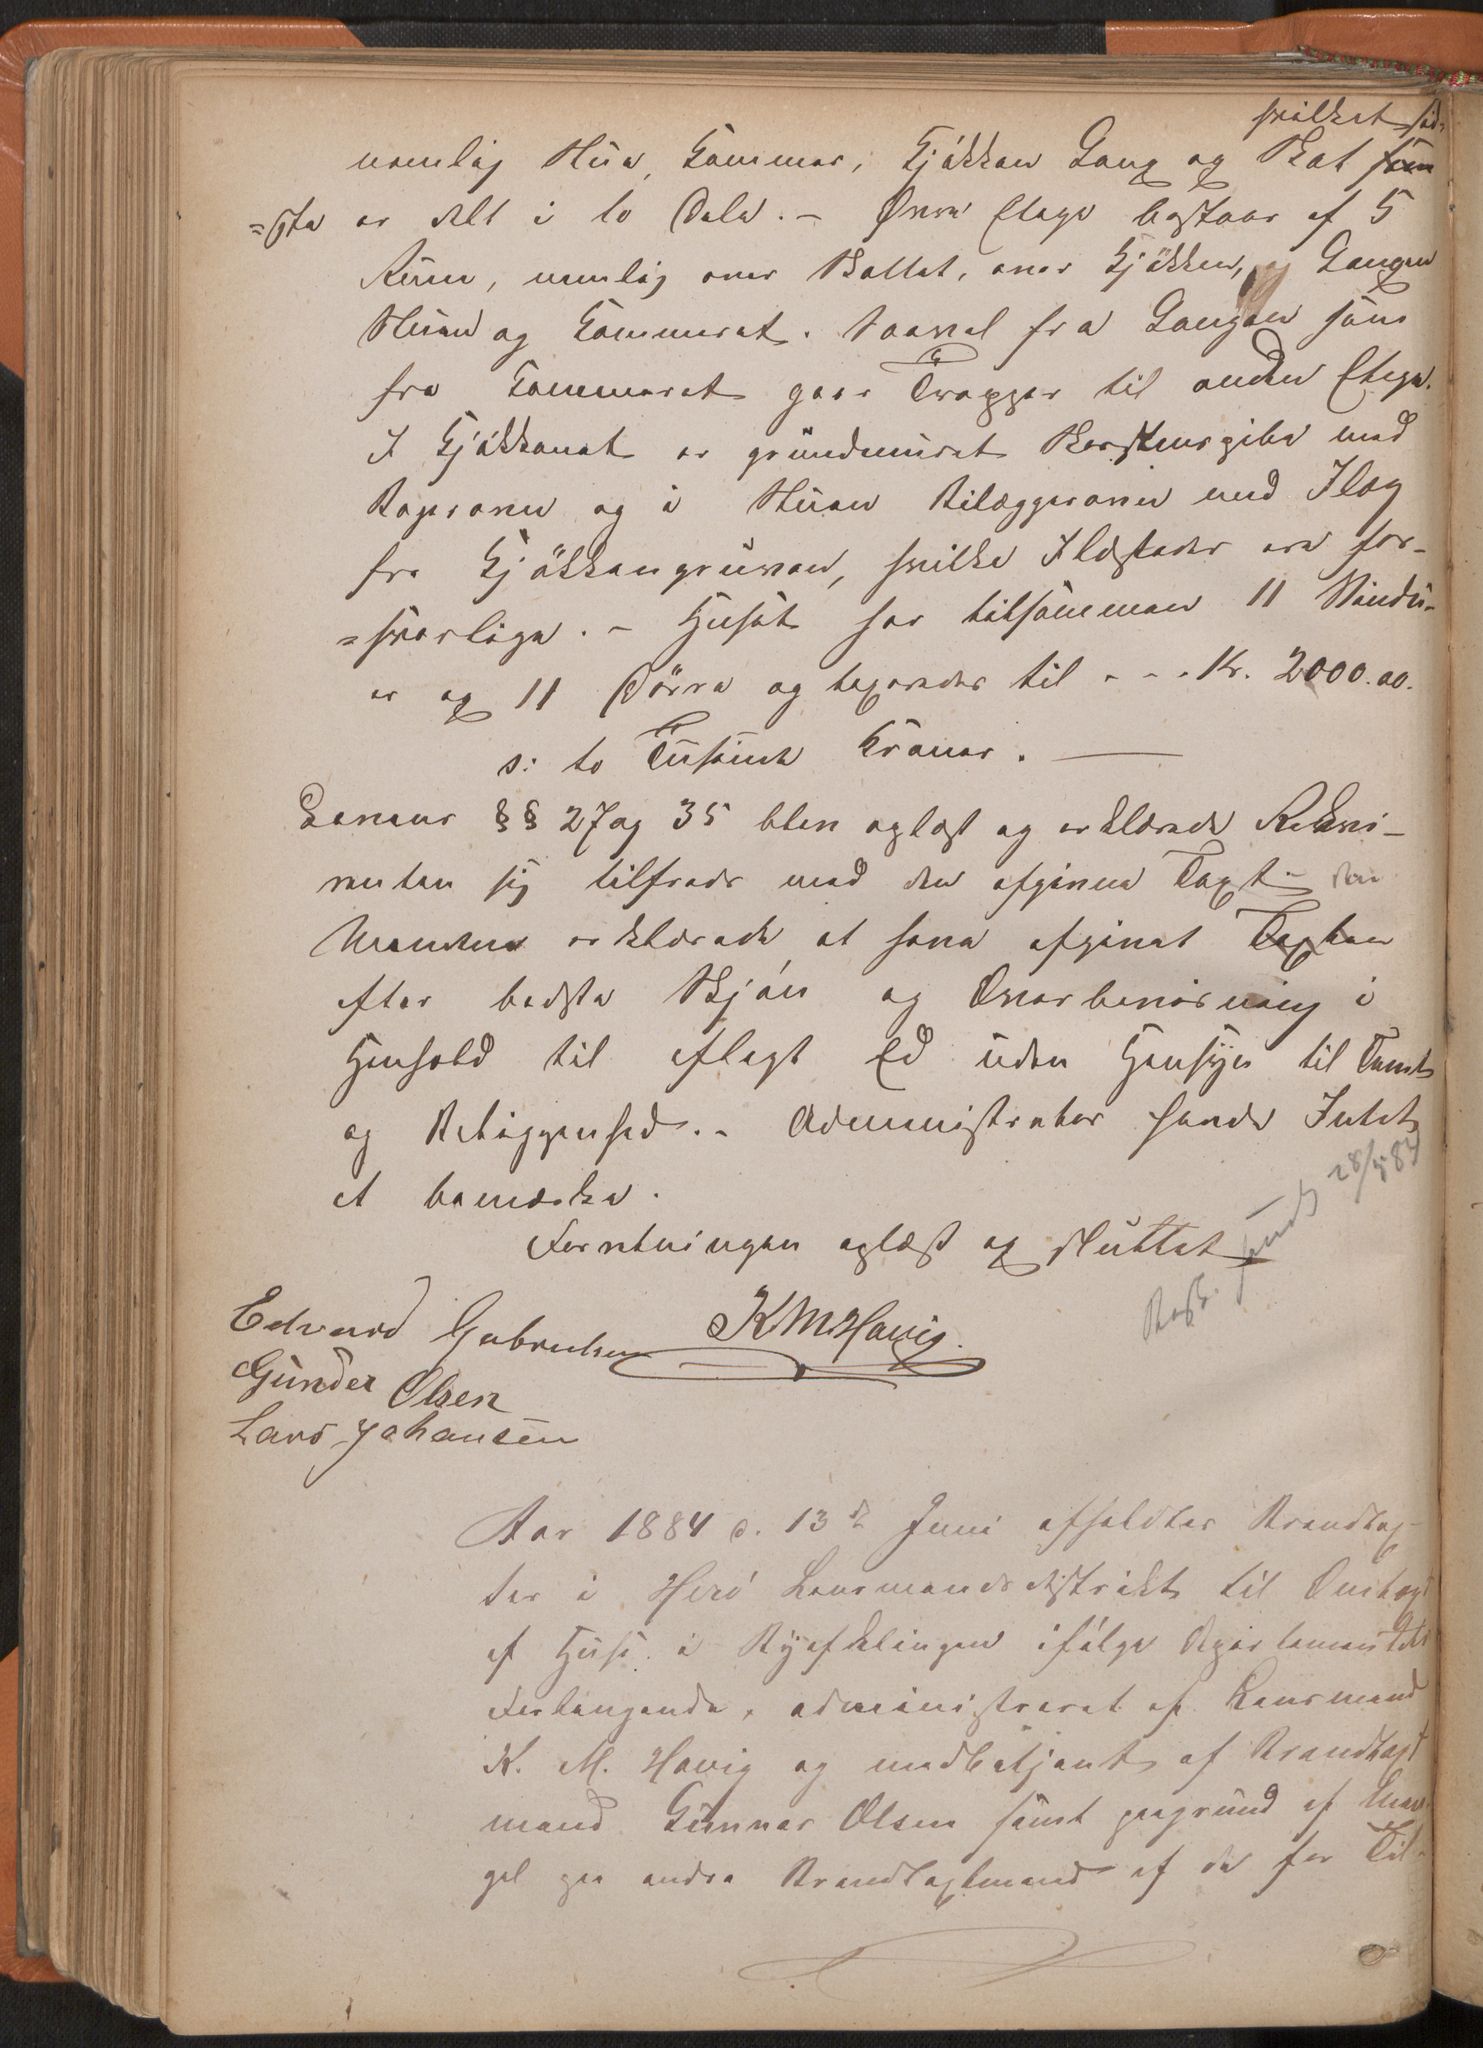 hvilket sid-
nemlig Stue, Kammer, Kjøkken Gang og Skot som
=ste er delt i to Dele. - Øvre Etage bestaar af 5
Rum, nemlig over Skottet, over Kjøkken, og Gangen
Stuen og Kammeret. Saavel fra Gangen som
fra Kammeret gaar Trapper til anden Etage.
I Kjøkkenet er grundmuret Skorstenspibe med
Bagerovn og i Stuen Bilæggerovn med Ilæg
fra Kjøkkengruven, hvilke Ildsteder ere for-
=svarlige. - Huset har tilsammen 11 Vindu-
er og 11 Dörre og taxeredes til - - - Kr. 2000.00.
s: to Tusinde Kroner.
Lovens §§ 27 og 35 blev oplæst og erklærede Rekvi-
renten sig tilfreds med den afgivne Taxt.
Mændene erklærede at have afgivet Taxten
efter bedste Skjøn og Overbevisning i
Henhold til aflagt Ed uden Hensyn til Venskab
og Bebyggenhed. - Administrator havde Intet
at bemærke.
Forretningen oplæst og sluttet
Besk. sendt 28/5 84
Edvard Gabrielsen K M Havig.
Gunder Olsen
Lars Johansen
Aar 1884 d. 13de Juni afholdtes Brandtax-
ter i Herö Lensmandsdistrikt til Omtaxt
af Huse i Byafdelingen ifølge Departementets
Forlangende, administreret af Lensmand
K. M. Havig og medbetjent af Brandtaxt
mand Gunnar Olsen samt paagrund af Man-
gel paa andre Brandtaxtmænd af de for Til-